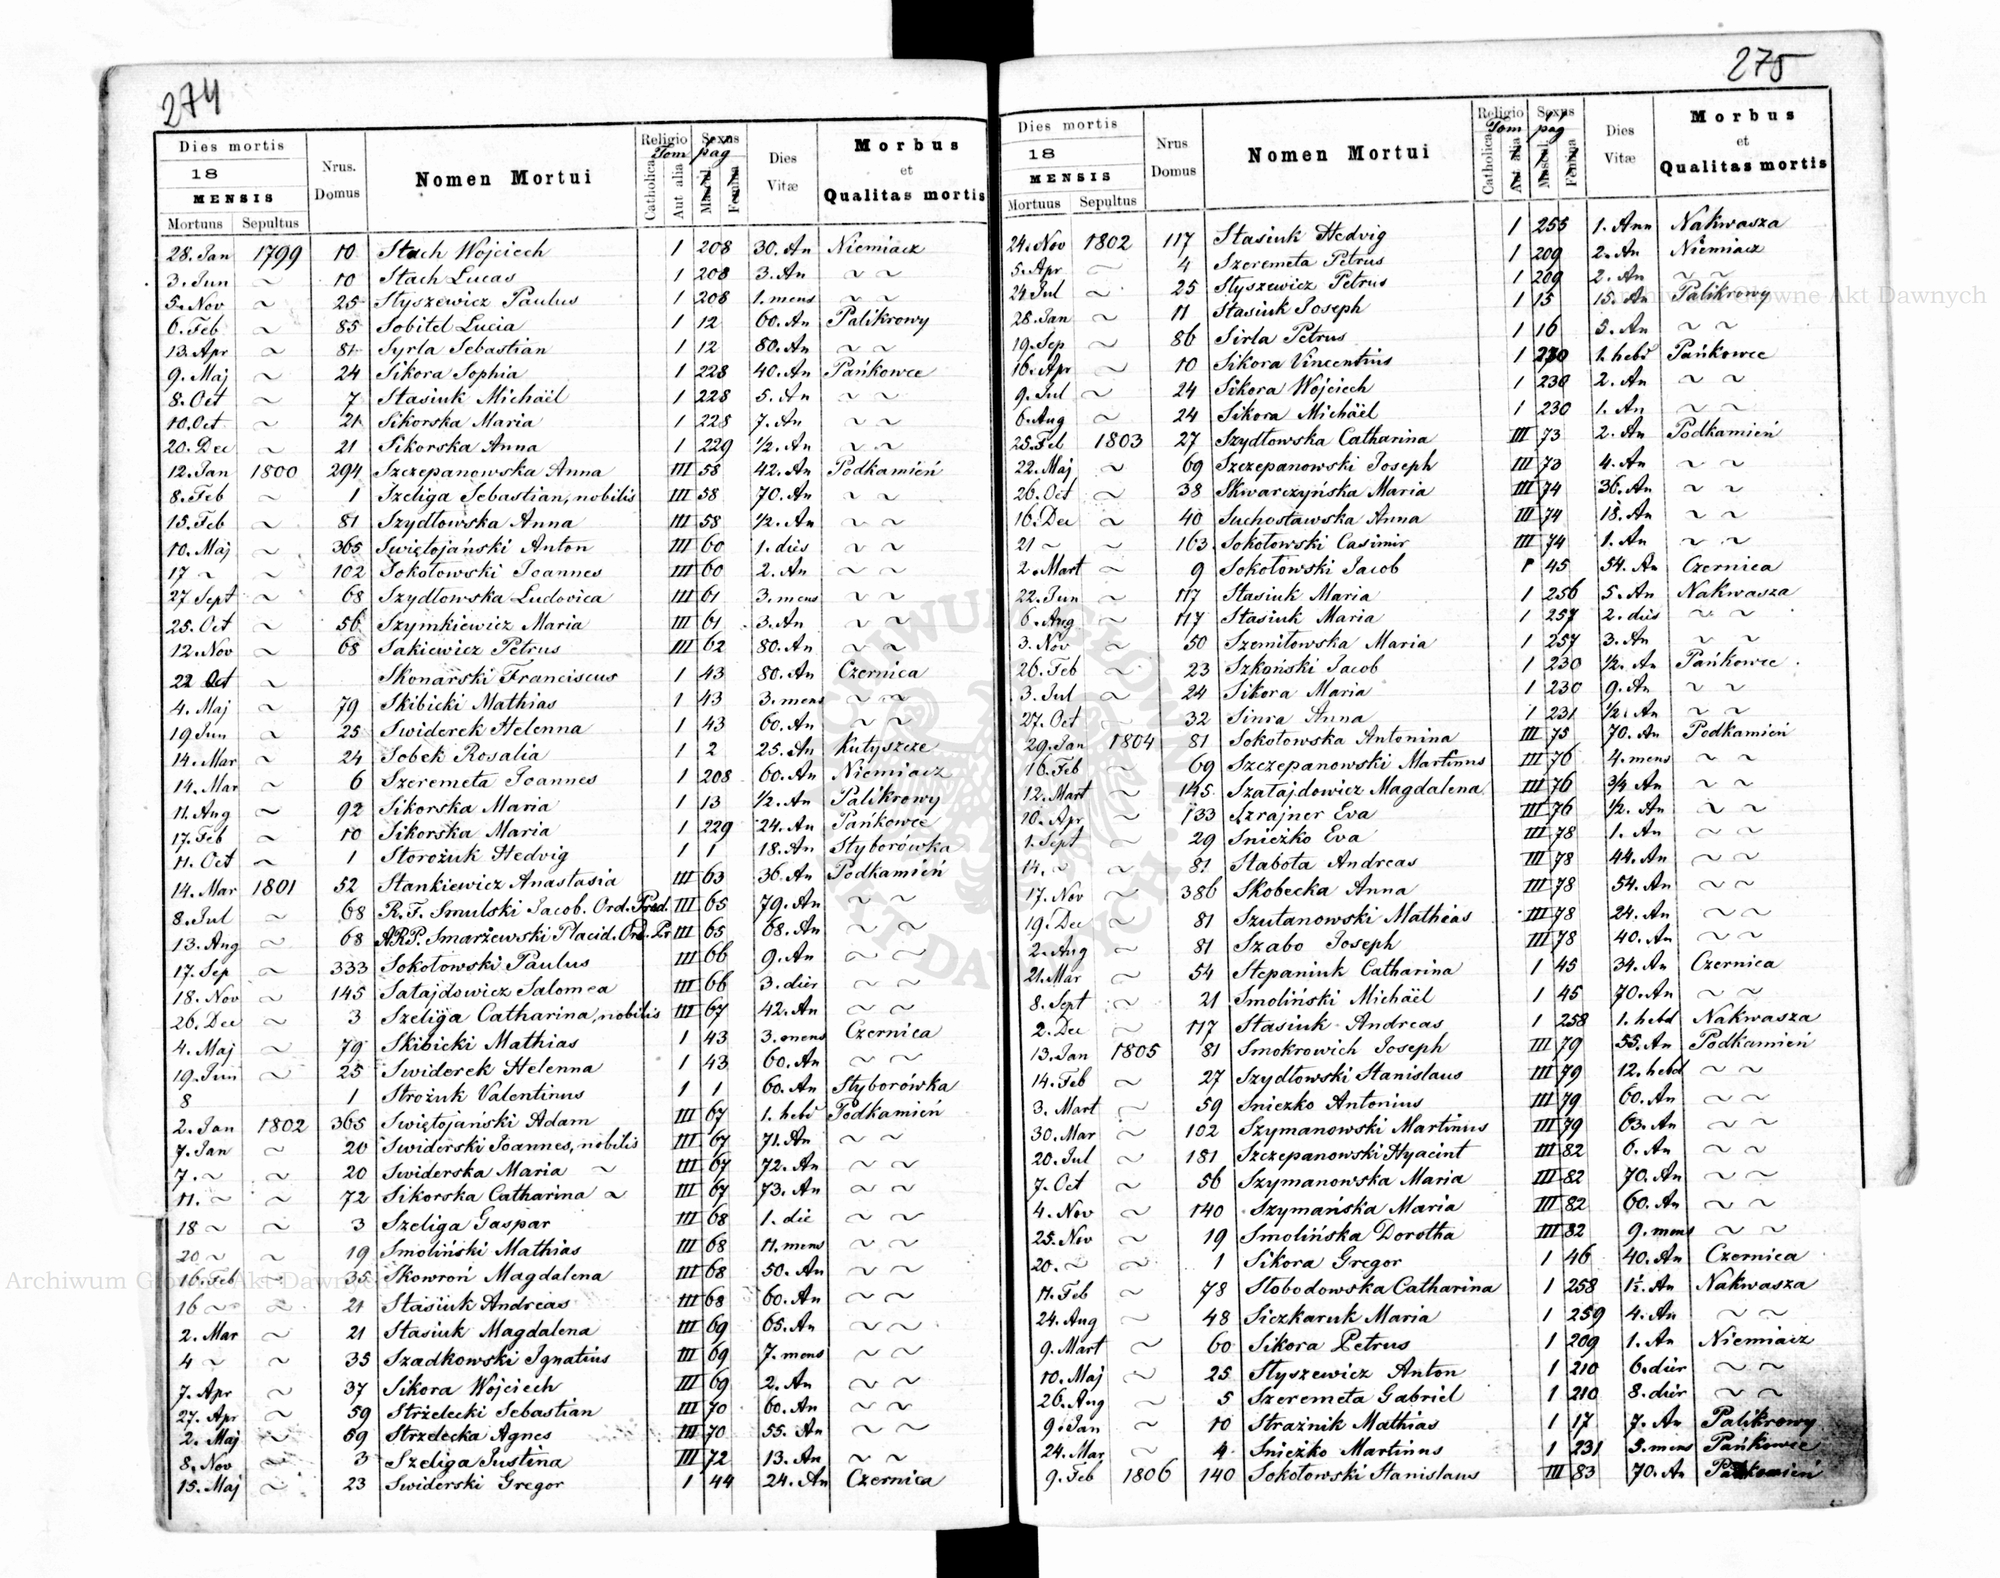 274
Dies mortis
18
MENSIS
Mortuus Sepultus
Nrus. Domus
Nomen Mortui
Religio Tom
Catholica Aut. alia
Sexus pag
Mascul Femina
Dies Vitæ
Morbus et Qualitas mortis
28. Jan 1799 10 Stach Wojciech 1 208 30. An Niemiacz
3. Jun ~ 10 Stach Lucas 1 208 3. An ~ ~
5. Nov ~ 25 Styszewicz Paulus 1 208 1. mens ~ ~
6. Feb ~ 85 Sobitel Lucia 1 12 60. An Palikrowy
13. Apr ~ 81 Syrla Sebastian 1 12 80. An ~ ~
9. Maj ~ 24 Sikora Sophia 1 228 40. An Pańkowce
8. Oct ~ 7 Stasiuk Michäel 1 228 5. An ~ ~
10. Oct ~ 21 Sikorska Maria 1 228 7. An ~ ~
20. Dec ~ 21 Sikorska Anna 1 229 1/2. An ~ ~
12. Jan 1800 294 Szczepanowska Anna III 58 42. An Podkamień
8. Feb ~ 1 Szeliga Sebastian, nobilis III 58 70. An ~ ~
15. Feb ~ 81 Szydłowska Anna III 58 1/2. An ~ ~
10. Maj ~ 365 Swiętojański Anton III 60 1. dies ~ ~
17 ~ ~ 102 Sokołowski Joannes III 60 2. An ~ ~
27 Sept ~ 68 Szydłowska Ludovica III 61 3. mens ~ ~
25. Oct ~ 56 Szymkiewicz Maria III 61 3. An ~ ~
12. Nov ~ 68 Sakiewicz Petrus III 62 80. An ~ ~
22 Oct ~ Skonarski Franciscus 1 43 80. An Czernica
4. Maj ~ 79 Skibicki Mathias 1 43 3. mens ~ ~
19 Jun ~ 25 Swiderek Helenna 1 43 60. An ~ ~
14. Mar ~ 24 Sobek Rosalia 1 2 25. An Kutyszcze
14. Mar ~ 6 Szeremeta Joannes 1 208 60. An Niemiacz
11. Aug ~ 92 Sikorska Maria 1 13 1/2. An Palikrowy
17. Feb ~ 10 Sikorska Maria 1 229 24. An Pańkowce
11. Oct ~ 1 Storożuk Hedvig 1 1 18. An Styborówka
14. Mar 1801 52 Stankiewicz Anastasia III 63 36. An Podkamień
8. Jul ~ 68 R. F. Smulski Jacob. Ord. Præd. III 65 79. An ~ ~
13. Aug ~ 68 A.R.P. Smarżewski Placid. Ord. Pr III 65 68. An ~ ~
17. Sep ~ 333 Sokołowski Paulus III 66 9. An ~ ~
18. Nov ~ 145 Satajdowicz Salomea III 66 3. dier ~ ~
26. Dec ~ 3 Szeliga Catharina, nobilis III 67 42. An ~ ~
4. Maj ~ 79 Skibicki Mathias 1 43 3. mens Czernica
19. Jun ~ 25 Swiderek Helenna 1 43 60. An ~ ~
8 1 Strożuk Valentinus 1 1 60. An Styborówka
2. Jan 1802 365 Swiętojański Adam III 67 1. hebd Podkamień
7. Jan ~ 20 Swiderski Joannes, nobilis III 67 71. An ~ ~
7. ~ ~ 20 Swiderska Maria ~ III 67 72. An ~ ~
11. ~ ~ 72 Sikorska Catharina ~ III 67 73. An ~ ~
18 ~ ~ 3 Szeliga Gaspar III 68 1. die ~ ~
20 ~ ~ 19 Smoliński Mathias III 68 11. mens ~ ~
16. Feb ~ 35 Skowroń Magdalena III 68 50. An ~ ~
16 ~ ~ 21 Stasiuk Andreas III 68 60. An ~ ~
2. Mar ~ 21 Stasiuk Magdalena III 69 65. An ~ ~
4 ~ ~ 35 Szadkowski Ignatius III 69 7. mens ~ ~
7. Apr ~ 37 Sikora Wojciech III 69 2. An ~ ~
27. Apr ~ 59 Strzelecki Sebastian III 70 60. An ~ ~
2. Maj ~ 59 Strzelecka Agnes III 70 55. An ~ ~
8. Nov ~ 3 Szeliga Justina III 72 13. An ~ ~
15. Maj ~ 23 Swiderski Gregor 1 44 24. An Czernica
275
Dies mortis
18
MENSIS
Mortuus Sepultus
Nrus Domus
Nomen Mortui
Religio Tom
Catholica Aut alia
Sexus pag
Mascul Femina
Dies Vitæ
Morbus et Qualitas mortis
24. Nov 1802 117 Stasiuk Hedvig 1 255 1. Ann Nakwasza
5. Apr ~ 4 Szeremeta Petrus 1 209 2. An Niemiacz
24 Jul ~ 25 Styszewicz Petrus 1 209 2. An ~ ~
28. Jan ~ 11 Stasiuk Joseph 1 15 15. An Palikrowy
19. Sep ~ 86 Sirla Petrus 1 16 5. An ~ ~
16. Apr ~ 10 Sikora Vincentius 1 230 1. hebd Pańkowce
9. Jul ~ 24 Sikora Wojciech 1 230 2. An ~ ~
6. Aug ~ 24 Sikora Michäel 1 230 1. An ~ ~
25. Feb 1803 27 Szydłowska Catharina III 73 2. An Podkamień
22. Maj ~ 69 Szczepanowski Joseph III 73 4. An ~ ~
26. Oct ~ 38 Skwarczyńska Maria III 74 36. An ~ ~
16. Dec ~ 40 Suchosławska Anna III 74 18. An ~ ~
21 ~ ~ 163 Sokołowski Casimir III 74 1. An ~ ~
2. Mart ~ 9 Sokołowski Jacob 1 45 54. An Czernica
22. Jun ~ 117 Stasiuk Maria 1 256 5. An Nakwasza
6. Aug ~ 117 Stasiuk Maria 1 257 2. dies ~ ~
3. Nov ~ 50 Szemiłowska Maria 1 257 3. An ~ ~
26. Feb ~ 23 Szkoński Jacob 1 230 1/2. An Pańkowce
3. Jul ~ 24 Sikora Maria 1 230 9. An ~ ~
27. Oct ~ 32 Sinra Anna 1 231 1/2. An ~ ~
29. Jan 1804 81 Sokołowska Antonina III 75 70. An Podkamień
16. Feb ~ 69 Szczepanowski Martinus III 76 4. mens ~ ~
12. Mart ~ 145 Szatajdowicz Magdalena III 76 3/4. An ~ ~
10. Apr ~ 133 Szrajner Eva III 76 1/2. An ~ ~
1. Sept ~ 29 Snieżko Eva III 78 1. An ~ ~
14. ~ ~ 81 Słabota Andreas III 78 44. An ~ ~
17. Nov ~ 386 Skobecka Anna III 78 54. An ~ ~
19. Dec ~ 81 Szułanowski Mathias III 78 24. An ~ ~
2. Aug ~ 81 Szabo Joseph III 78 40. An ~ ~
21. Mar ~ 54 Stepaniuk Catharina 1 45 34. An Czernica
8. Sept ~ 21 Smoliński Michäel 1 45 70. An ~ ~
2. Dec ~ 117 Stasiuk Andreas 1 258 1. hebd Nakwasza
13. Jan 1805 81 Smokrowich Joseph III 79 55. An Podkamień
14. Feb ~ 27 Szydłowski Stanislaus III 79 12. hebd ~ ~
3. Mart ~ 59 Snieżko Antonius III 79 60. An ~ ~
30. Mar ~ 102 Szymanowski Martinus III 79 63. An ~ ~
20. Jul ~ 181 Szczepanowski Hyacint III 82 6. An ~ ~
7. Oct ~ 56 Szymanowska Maria III 82 70. An ~ ~
4. Nov ~ 140 Szymańska Maria III 82 60. An ~ ~
25. Nov ~ 19 Smolińska Dorotha III 82 9. mens ~ ~
20. ~ ~ 1 Sikora Gregor 1 46 40. An Czernica
11. Feb ~ 78 Słobodowska Catharina 1 258 1 1/2. An Nakwasza
24. Aug ~ 48 Sieczkaruk Maria 1 259 4. An ~ ~
9. Mart ~ 60 Sikora Petrus 1 209 1. An Niemiacz
10. Maj ~ 25 Styszewicz Anton 1 210 6. dier ~ ~
26. Aug ~ 5 Szeremeta Gabriel 1 210 8. dier ~ ~
9. Jan ~ 10 Strażnik Mathias 1 17 7. An Palikrowy
24. Mar ~ 4 Snieżko Martinus 1 231 3. mens Pańkowce
9. Feb 1806 140 Sokołowski Stanislaus III 83 70. An Podkamień
Archiwum Główne Akt Dawnych